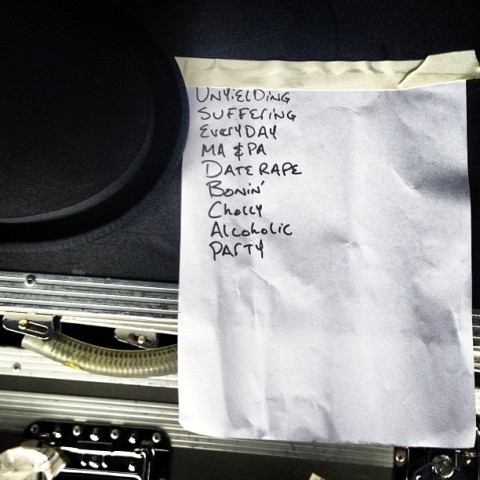 UNYIELDING
SUFFERING
EVERYDAY
MA & PA
DATE RAPE
BONIN'
CHOLLY
ALCOHOLIC
PARTY